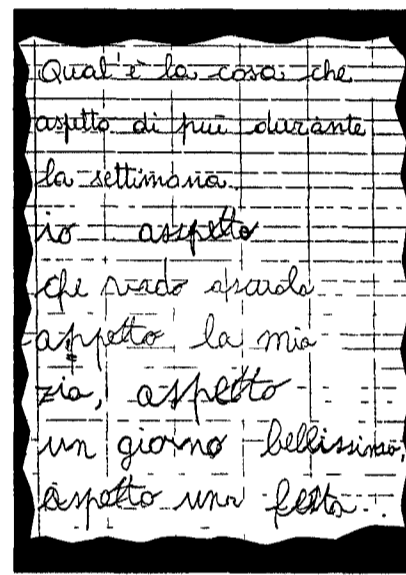 Qual'è la cosa che
aspetto di più durante
la settimana.
io asspetto
che vado ascuola
aspetto la mia
zia, aspetto
un giorno bellissimo,
aspetto una festa...